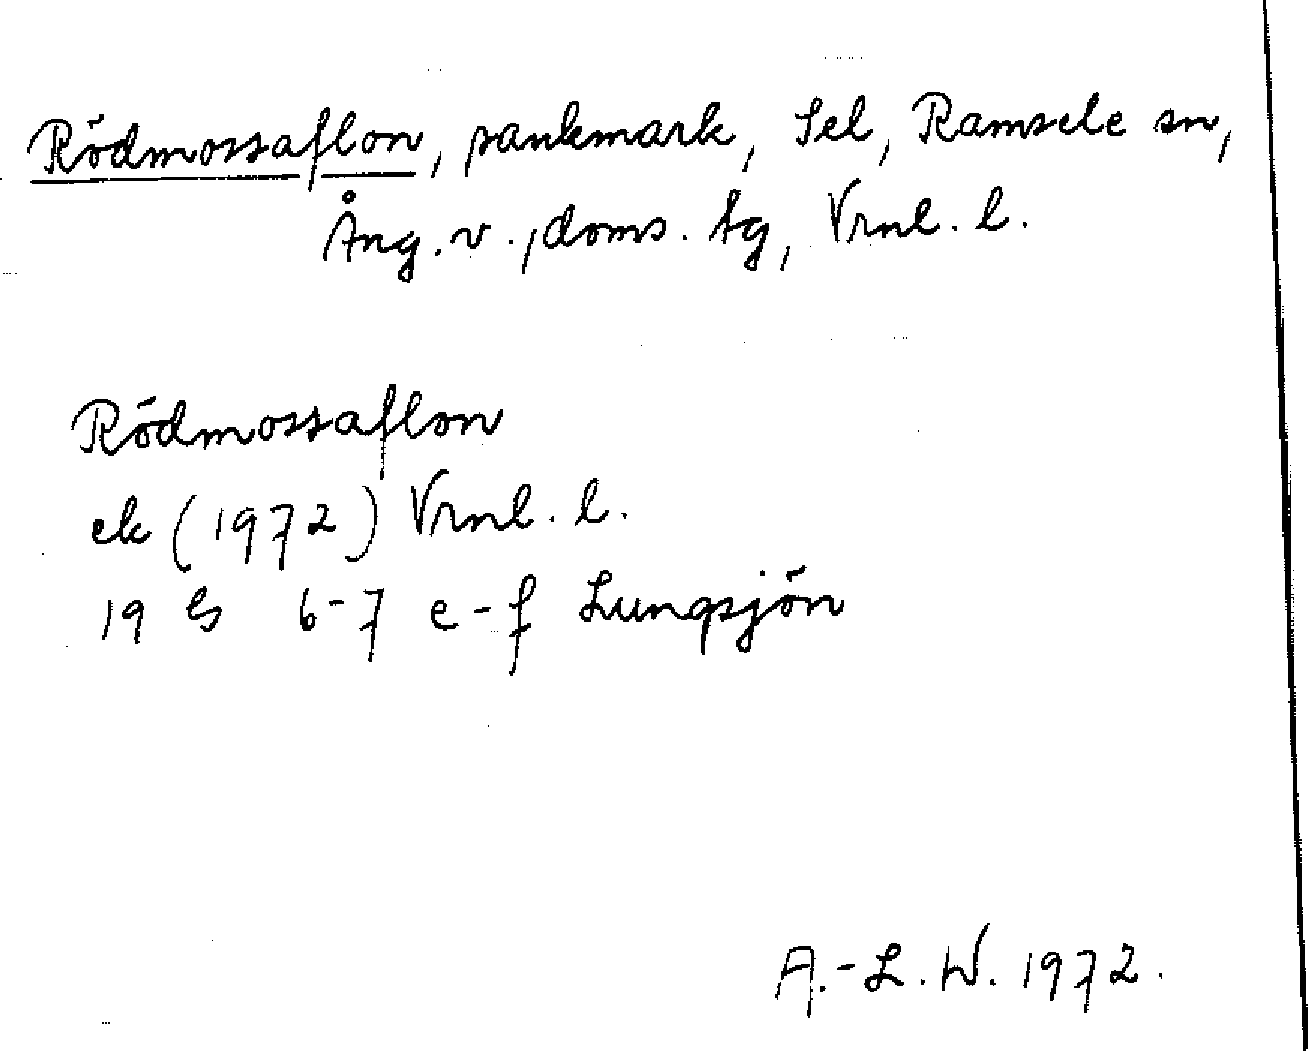 Rödmossaflon, sankmark, Sel, Ramsele sn,
Ång. v., doms. tg, Vrnl. l.
Rödmossaflon
ek (1972) Vrnl. l.
19 G 6-7 e-f Lungsjön
A.-L. W. 1972.